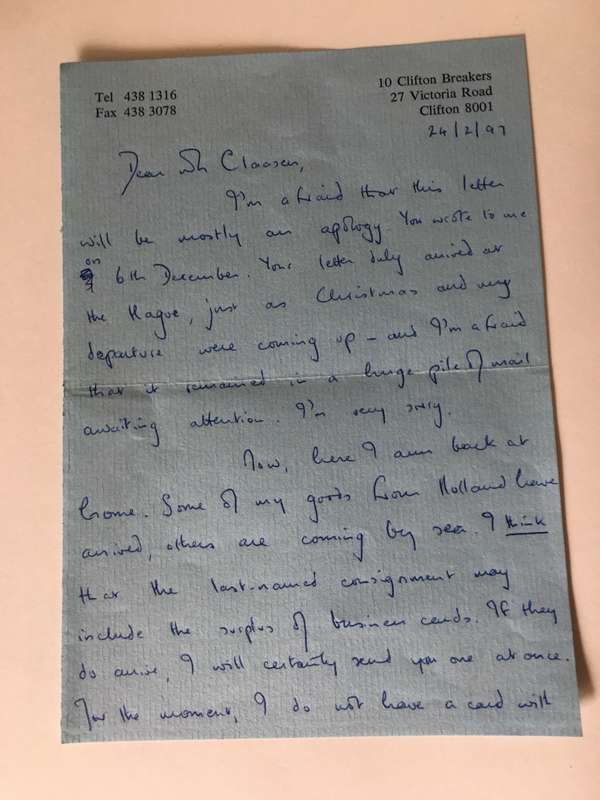 Tel 438 1316
Fax 438 3078
10 Clifton Breakers
27 Victoria Road
Clifton 8001
24/2/97
Dear Mr Claasen,
I'm afraid that this letter
will be mostly an apology. You wrote to me
on 6th December. Your letter duly arrived at
the Hague, just as Christmas and my
departure were coming up – and I'm afraid
that it remained in a huge pile of mail
awaiting attention. I'm very sorry.
Now, here I am back at
home. Some of my goods from Holland have
arrived, others are coming by sea. I think
that the last-named consignment may
include the surplus of business cards. If they
do arrive, I will certainly send you one at once.
For the moment, I do not have a card with